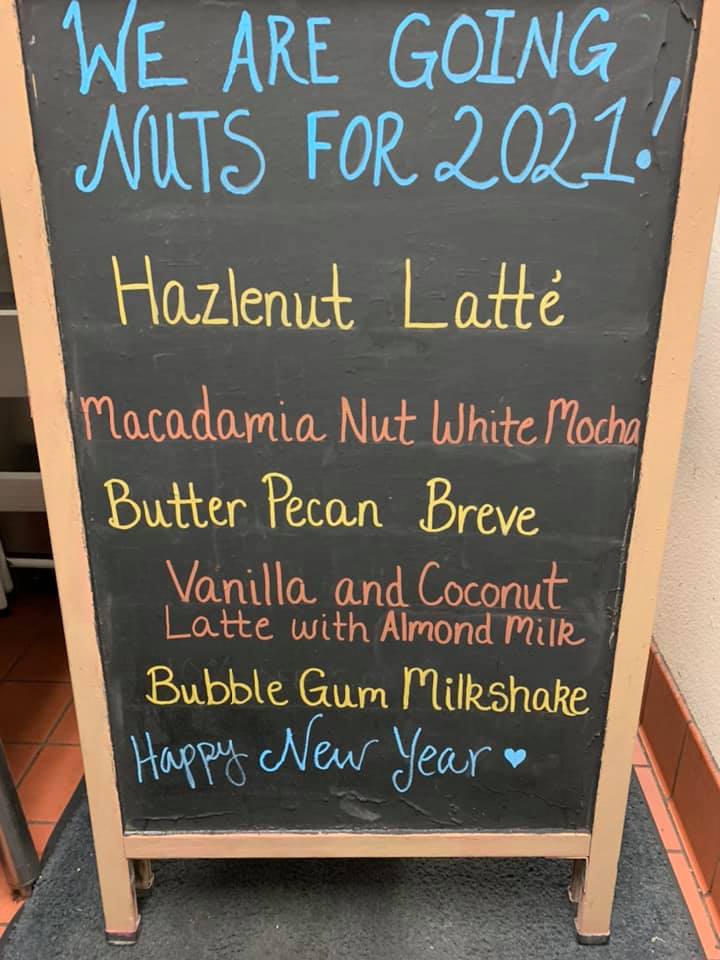 WE ARE GOING
NUTS FOR 2021!
Hazlenut Latté
Macadamia Nut White Mocha
Butter Pecan Breve
Vanilla and Coconut
Latte with Almond Milk
Bubble Gum Milkshake
Happy New Year ♥